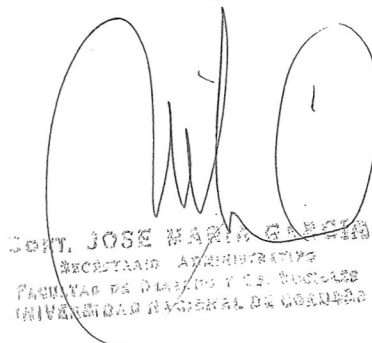 CONT. JOSE MARIA GARCIA
SECRETARIO ADMINISTRATIVO
FACULTAD DE DERECHO Y CS. SOCIALES
UNIVERSIDAD NACIONAL DE CORDOBA